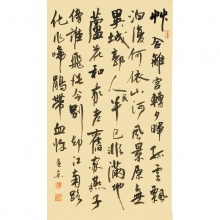 艸合離宮轉夕暉孤雲飄
泊復何依山河風景原無
異城郭人民半已非滿地
蘆花和我老舊家燕子
傍誰飛從今別卻江南路
化作啼鵑帶血歸